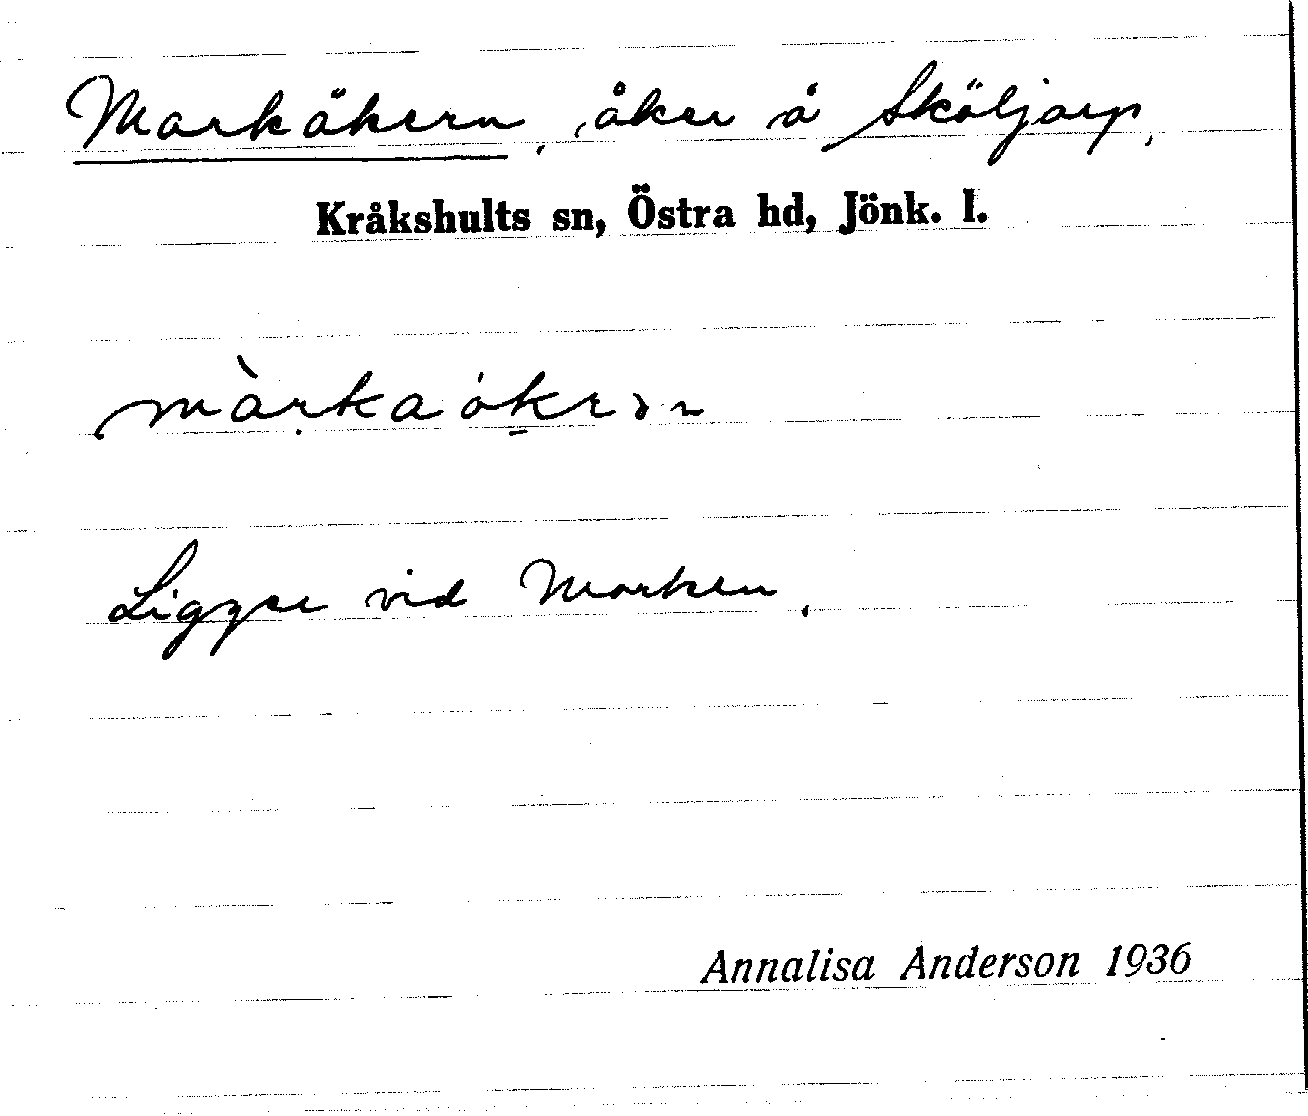 Markåkern, åker å Sköljarp,
Kråkshults sn, Östra hd, Jönk. l.
Ligger vid Marken.
Annalisa Anderson 1936